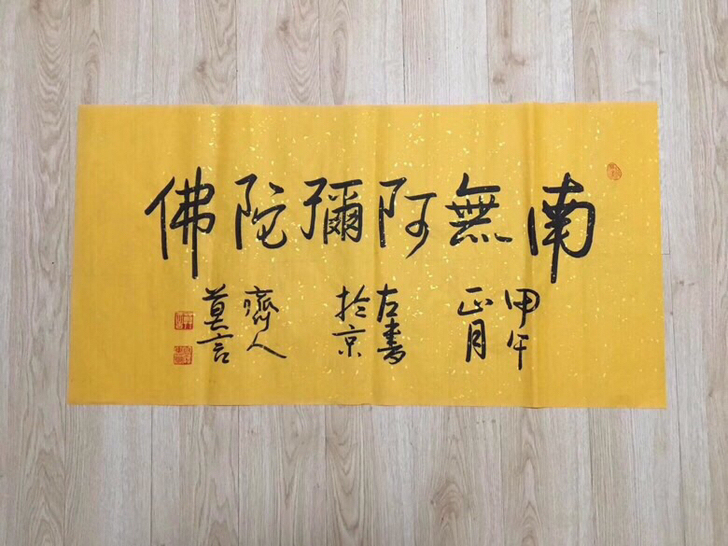 南無阿彌陀佛
甲午
正月
左書
於京
齊人
莫言